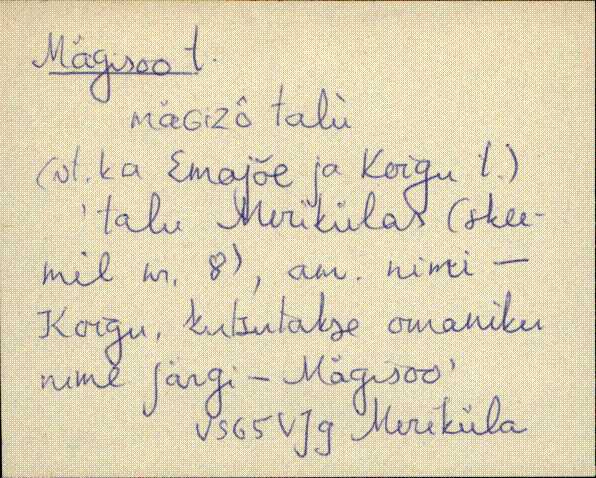 Mägisoo t.
mäɢizô talù
(vt. ka Emajõe ja Koigu t.)
'talu Merikülas (skee-
mil nr. 8), am. nimi –
Koigu, kutsutakse omaniku
nime järgi – Mägisoo'
VSG5 VJg Meriküla